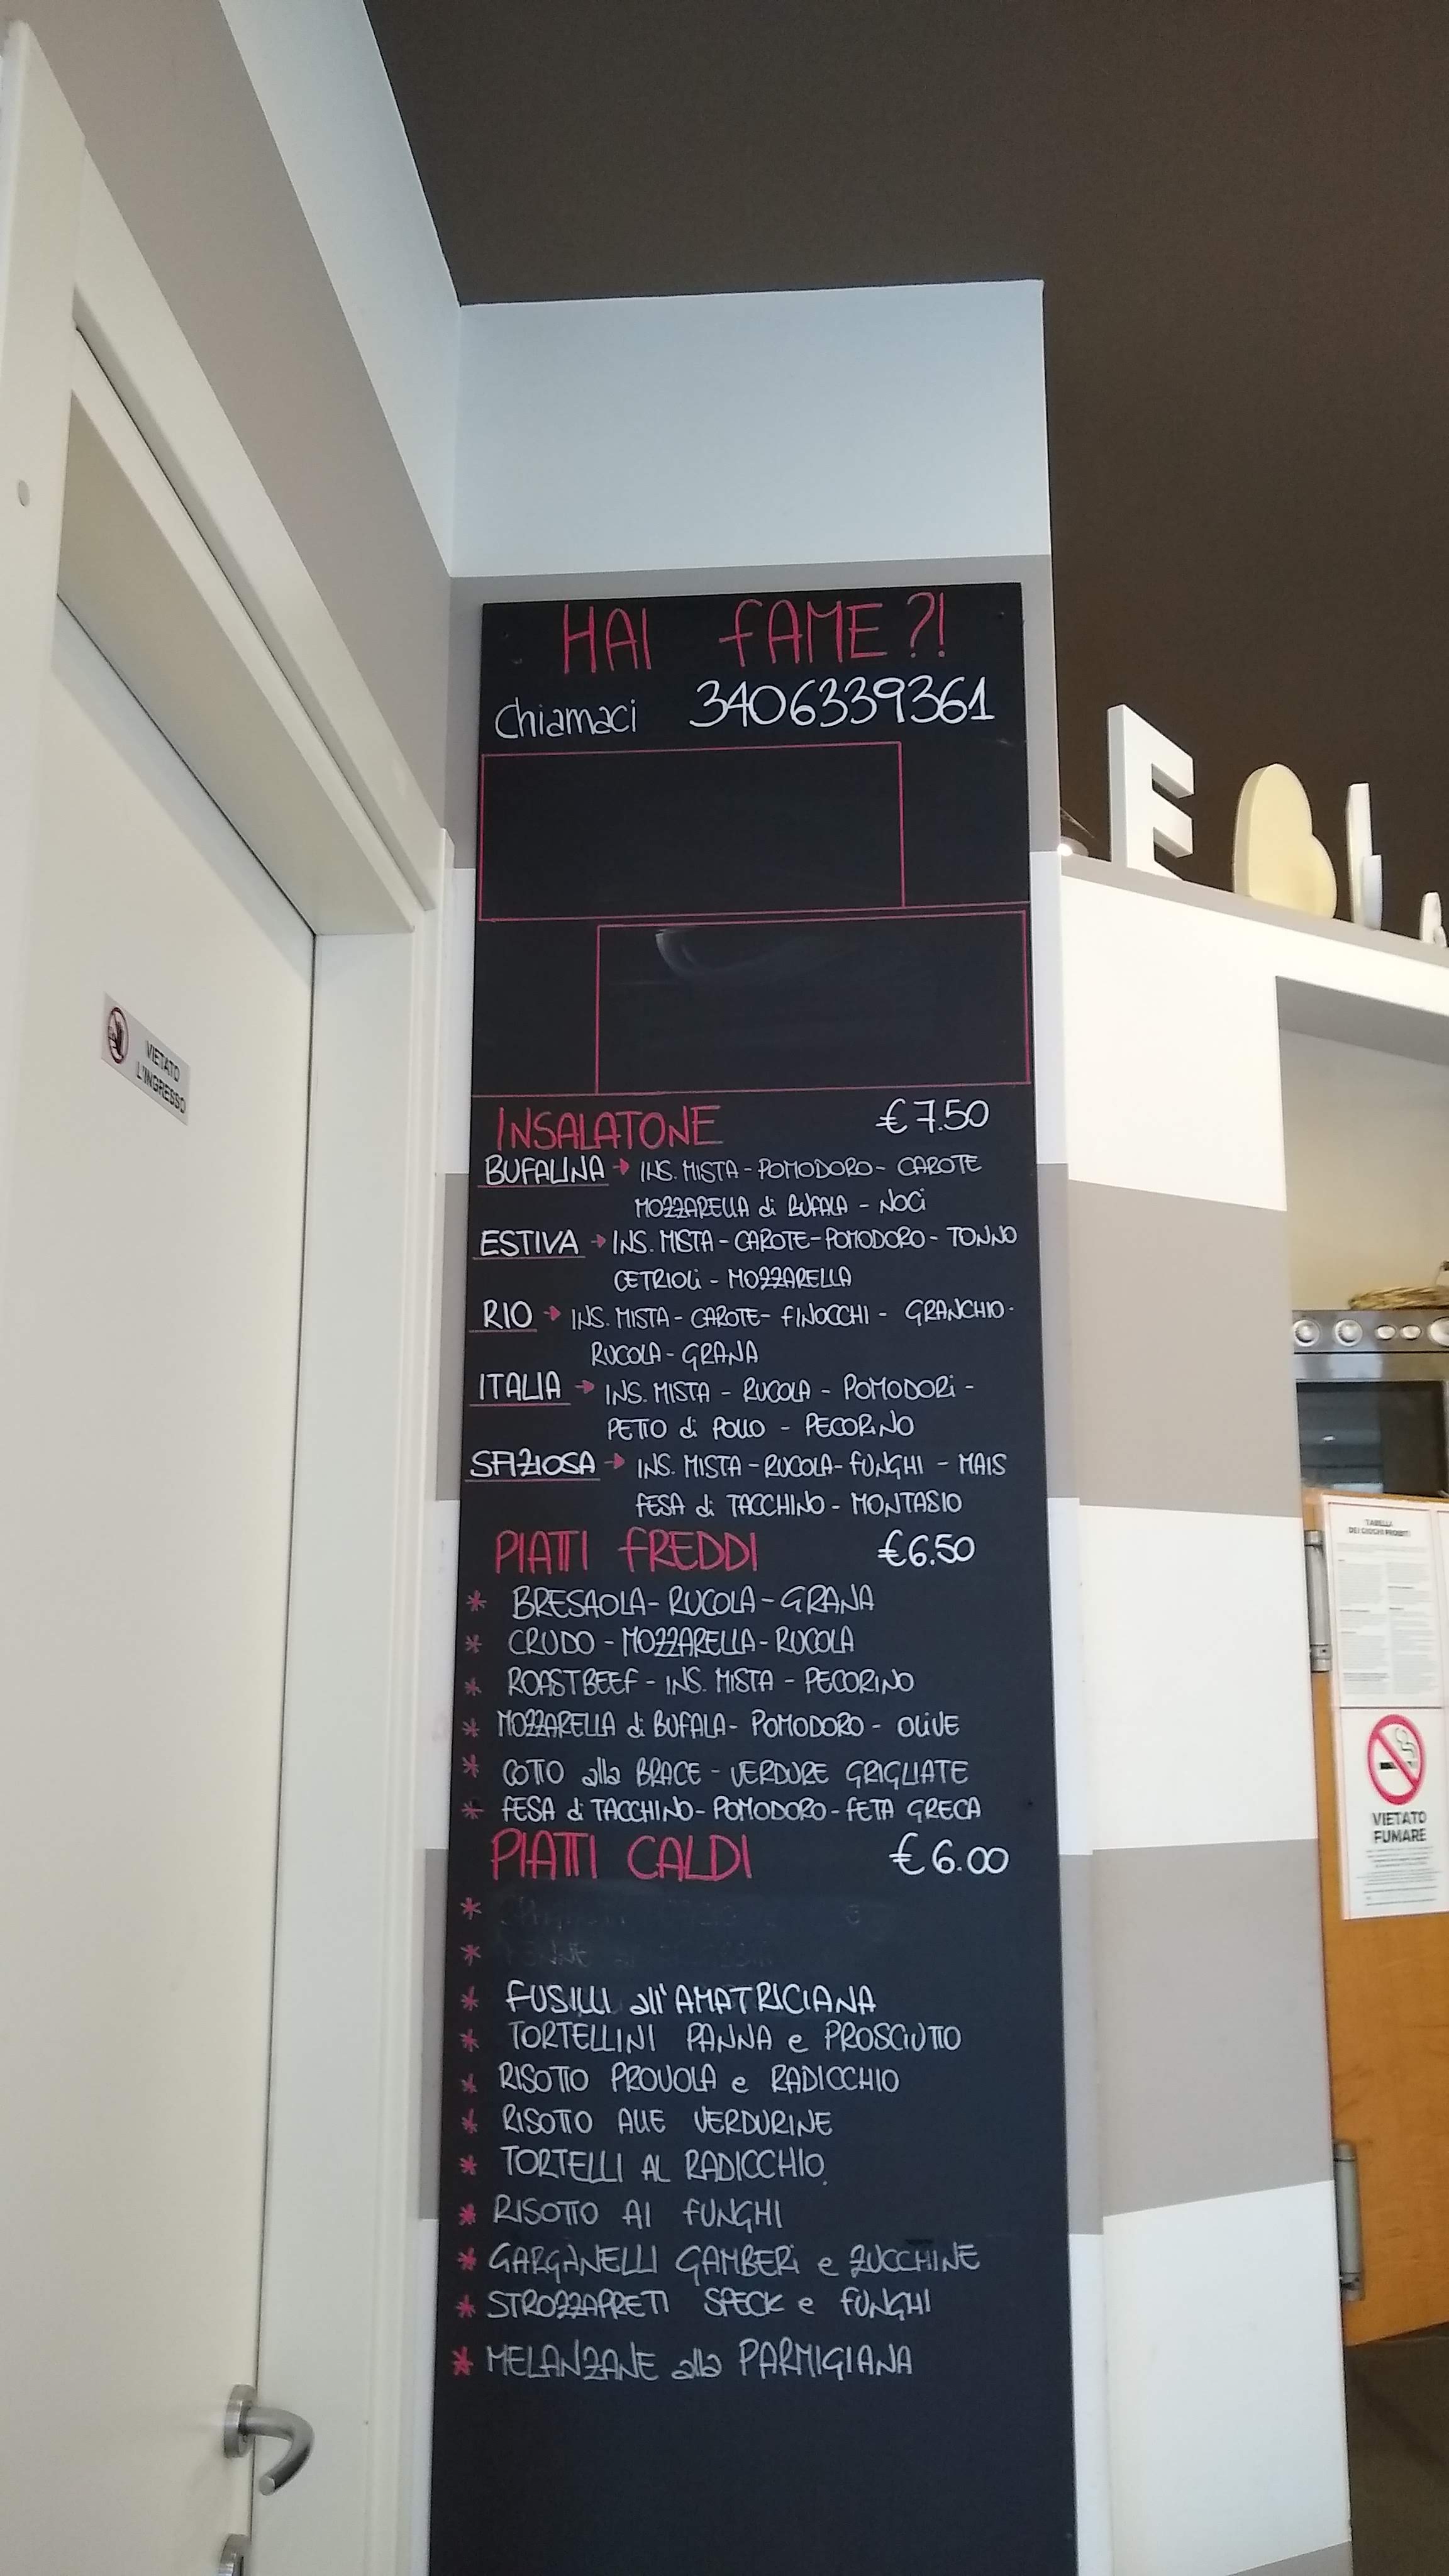 HAI FAME?!
Chiamaci 3406339361
INSALATONE €7.50
BUFALINA → INS. MISTA - POMODORO - CAROTE
MOZZARELLA di BUFALA - NOCI
ESTIVA → INS. MISTA - CAROTE - POMODORO - TONNO
CETRIOLI - MOZZARELLA
RIO → INS. MISTA - CAROTE - FINOCCHI - GRANCHIO -
RUCOLA - GRANA
ITALIA → INS. MISTA - RUCOLA - POMODORI -
PETTO di POLLO - PECORINO
SFIZIOSA → INS. MISTA - RUCOLA - FUNGHI - MAIS
FESA di TACCHINO - MONTASIO
PIATTI FREDDI €6.50
* BRESAOLA - RUCOLA - GRANA
* CRUDO - MOZZARELLA - RUCOLA
* ROASTBEEF - INS. MISTA - PECORINO
* MOZZARELLA di BUFALA - POMODORO - OLIVE
* COTTO alla BRACE - VERDURE GRIGLIATE
* FESA di TACCHINO - POMODORO - FETA GRECA
PIATTI CALDI €6.00
*
*
* FUSILLI all'AMATRICIANA
* TORTELLINI PANNA e PROSCIUTTO
* RISOTTO PROVOLA e RADICCHIO
* RISOTTO ALLE VERDURINE
* TORTELLI AL RADICCHIO
* RISOTTO AI FUNGHI
* GARGANELLI GAMBERI e ZUCCHINE
* STROZZAPRETI SPECK e FUNGHI
* MELANZANE alla PARMIGIANA
VIETATO
L'INGRESSO
E
TABELLA
DEI GIOCHI PROIBITI
VIETATO
FUMARE